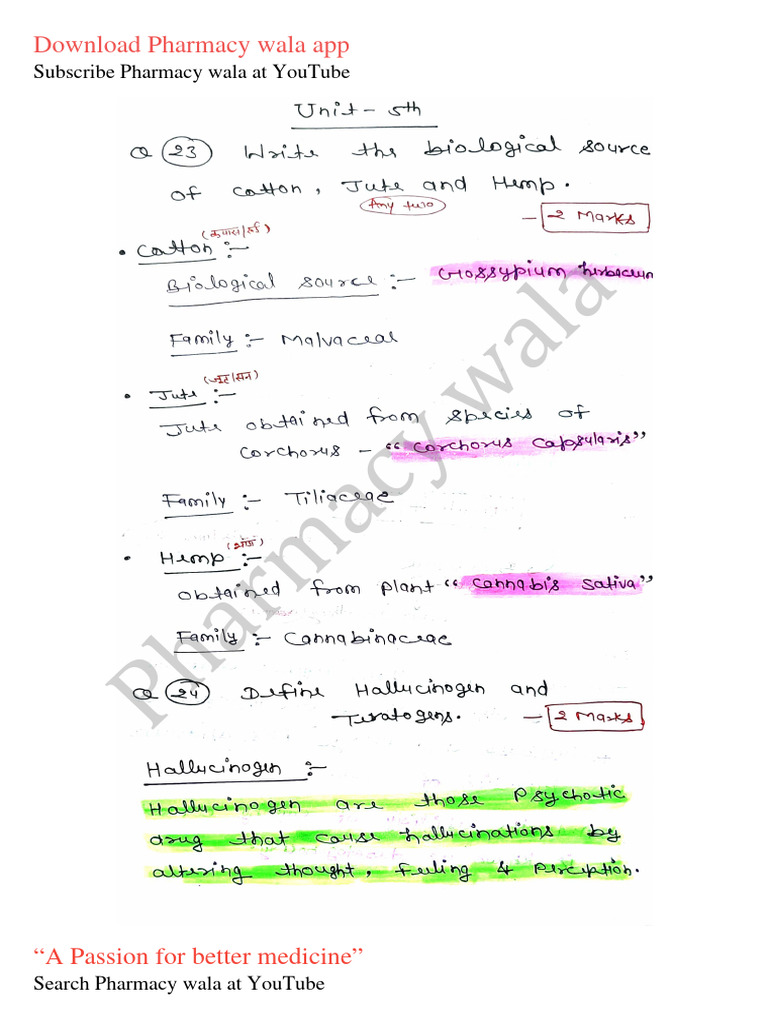 Download Pharmacy wala app
Subscribe Pharmacy wala at YouTube
Unit - 5th
Q 23 Write the biological source
of cotton, Jute and Hemp.
Any two
- 2 Marks
(कपास/रुई)
• Cotton :-
Biological source :- Gossypium herbaceum
Family :- Malvaceae
(जूट/सन)
• Jute :-
Jute obtained from species of
corchorus - "corchorus capsularis"
Family :- Tiliaceae
(भांग)
• Hemp :-
obtained from plant "cannabis sativa"
Family :- Cannabinaceae
Q 24 Define Hallucinogen and
Teratogens. - 2 Marks
Hallucinogen :-
Hallucinogen are those Psychotic
drug that cause hallucinations by
altering thought, feeling & perception.
Pharmacy wala
“A Passion for better medicine”
Search Pharmacy wala at YouTube